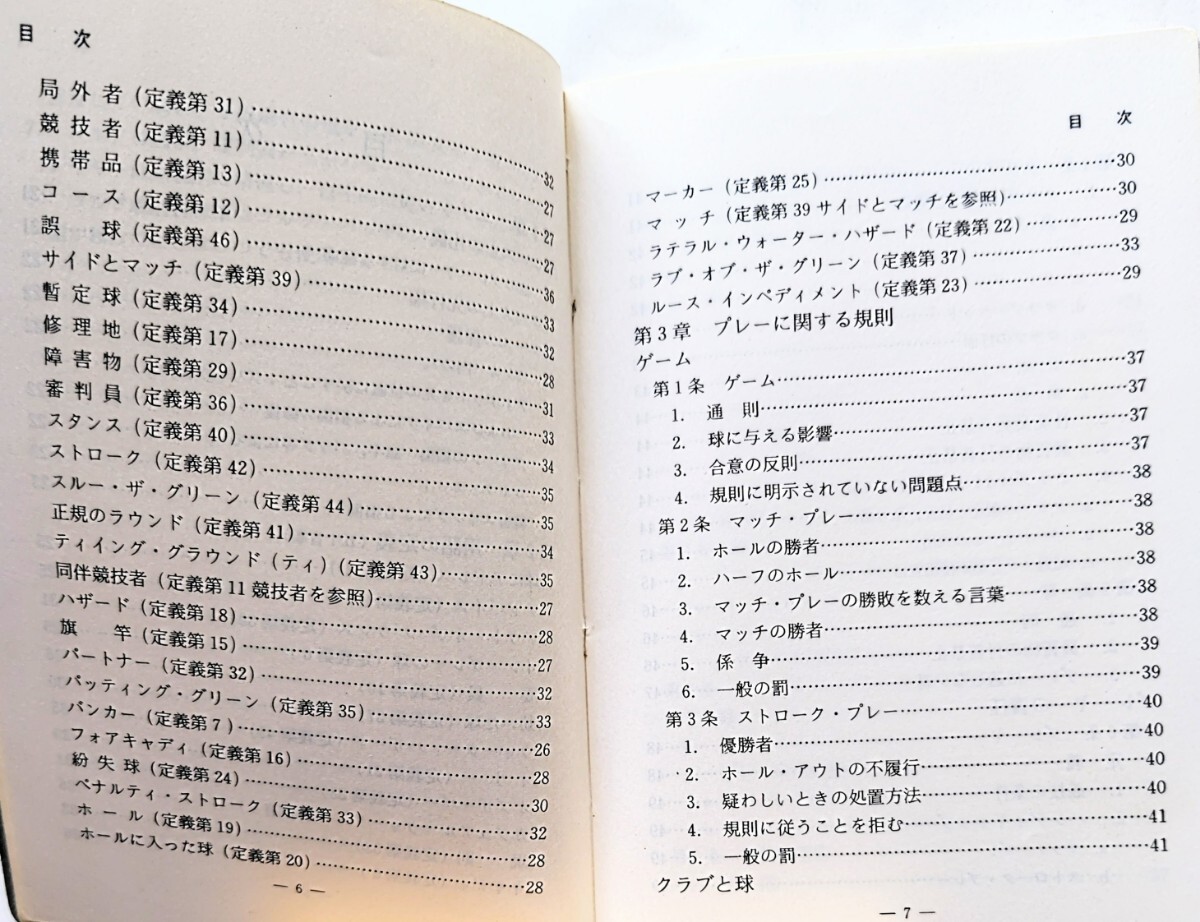 目　次
局外者（定義第31）……………32
競技者（定義第11）……………27
携帯品（定義第13）……………27
コース（定義第12）……………27
誤　球（定義第46）……………36
サイドとマッチ（定義第39）……………33
暫定球（定義第34）……………32
修理地（定義第17）……………28
障害物（定義第29）……………31
審判員（定義第36）……………33
スタンス（定義第40）……………34
ストローク（定義第42）……………35
スルー・ザ・グリーン（定義第44）……………35
正規のラウンド（定義第41）……………34
ティイング・グラウンド（ティ）（定義第43）……………35
同伴競技者（定義第11 競技者を参照）……………27
ハザード（定義第18）……………28
旗　竿（定義第15）……………27
パートナー（定義第32）……………32
パッティング・グリーン（定義第35）……………33
バンカー（定義第7）……………26
フォアキャディ（定義第16）……………28
紛失球（定義第24）……………30
ペナルティ・ストローク（定義第33）……………32
ホール（定義第19）……………28
ホールに入った球（定義第20）……………28
— 6 —
目　次
マーカー（定義第25）……………30
マッチ（定義第39 サイドとマッチを参照）……………30
ラテラル・ウォーター・ハザード（定義第22）……………29
ラブ・オブ・ザ・グリーン（定義第37）……………33
ルース・インペディメント（定義第23）……………29
第3章　プレーに関する規則
ゲーム
第1条　ゲーム……………37
1.　通　則……………37
2.　球に与える影響……………37
3.　合意の反則……………37
4.　規則に明示されていない問題点……………38
第2条　マッチ・プレー……………38
1.　ホールの勝者……………38
2.　ハーフのホール……………38
3.　マッチ・プレーの勝敗を数える言葉……………38
4.　マッチの勝者……………38
5.　係　争……………39
6.　一般の罰……………39
第3条　ストローク・プレー……………40
1.　優勝者……………40
2.　ホール・アウトの不履行……………40
3.　疑わしいときの処置方法……………40
4.　規則に従うことを拒む……………41
5.　一般の罰……………41
クラブと球
— 7 —